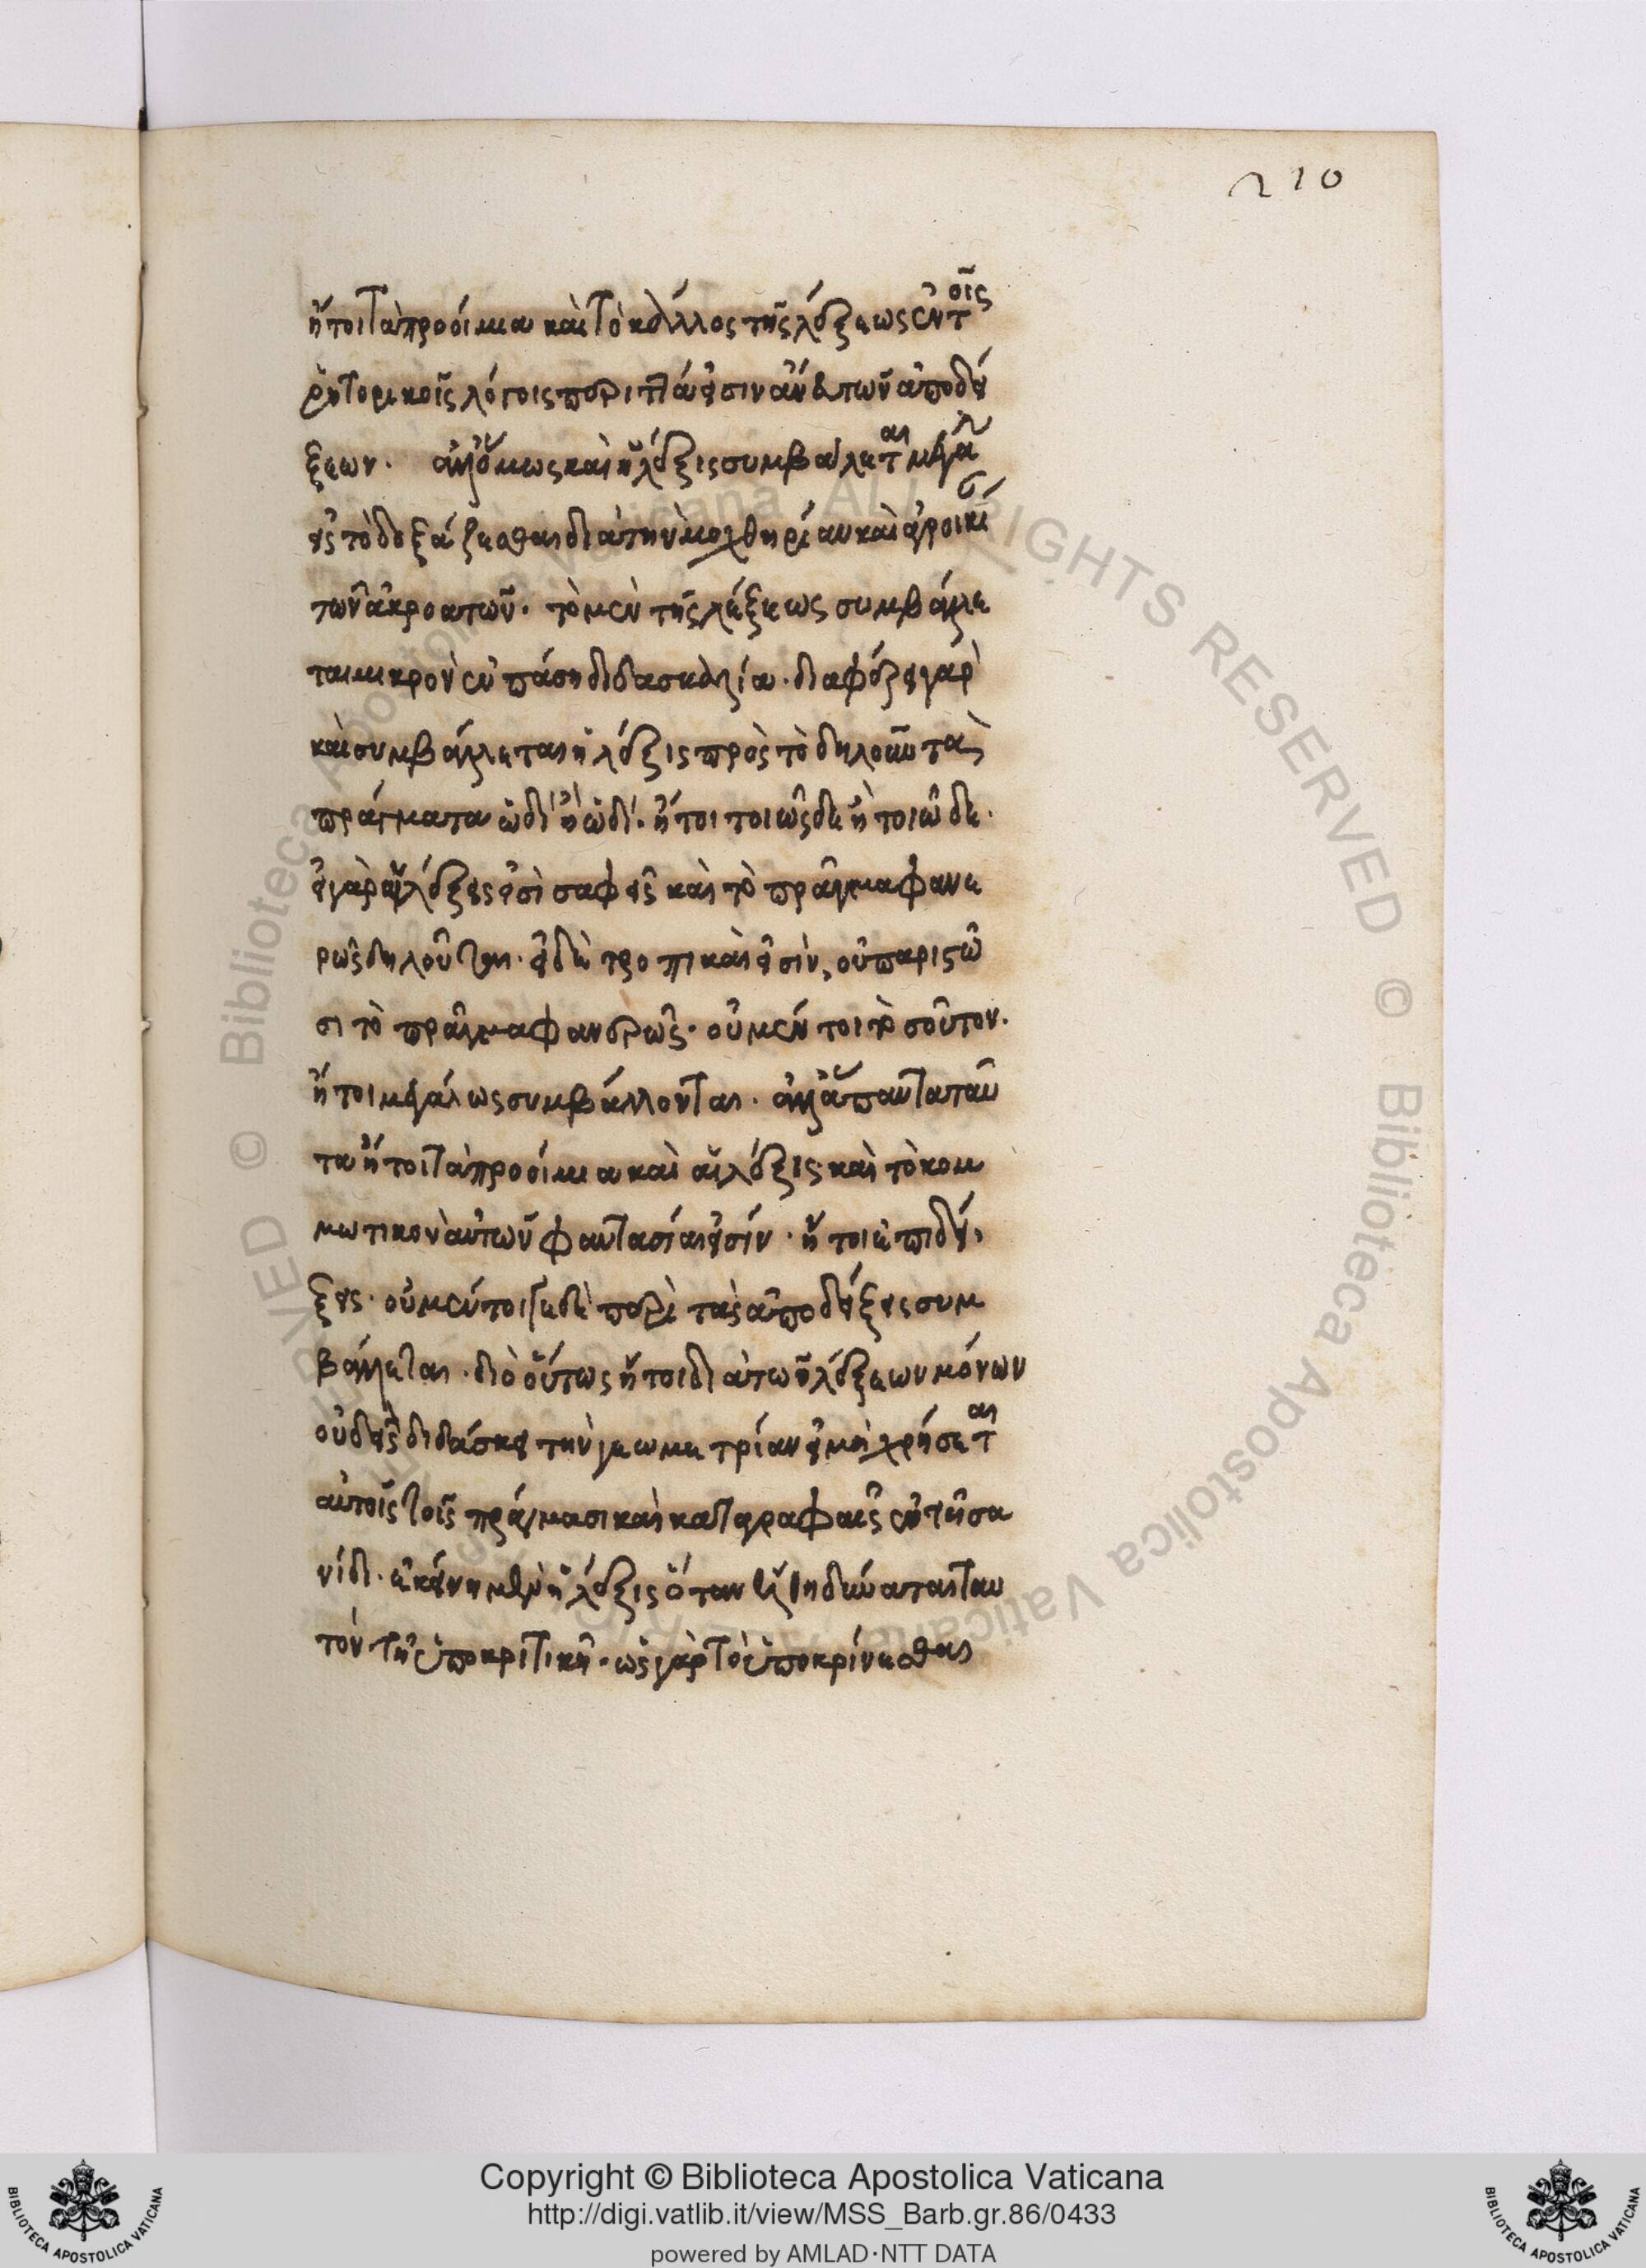 210
ἤτοι τὰ προοίμια καὶ τὸ κάλλος τῆς λέξεως ἐν τοῖς
ῥητορικοῖς λόγοις περιττά εἰσιν ἄνευ τῶν ἀποδεί
ξεων. ἀλλ' ὅμως καὶ ἡ λέξις συμβάλλεται μεγάλ
εἰς τὸ δοξάζεσθαι διὰ τὴν μοχθηρίαν καὶ ἀγροικί
τῶν ἀκροατῶν. τὸ μὲν τῆς λέξεως συμβάλλε
ται μικρὸν ἐν πάσῃ διδασκαλίᾳ. διαφέρει γὰρ
καὶ συμβάλλεται ἡ λέξις πρὸς τὸ δηλοῦν τὰ
πράγματα ὡδὶ ἢ ὡδί. ἤτοι τοιῶσδε ἢ τοιῶδε.
εἰ γὰρ αἱ λέξεις εἰσὶ σαφεῖς καὶ τὸ πρᾶγμα φανε
ρῶς δηλοῦται. εἰ δὲ τροπικαὶ εἰσίν, οὐ παριστῶ
σι τὸ πρᾶγμα φανερῶς. οὐ μέν τοι τοσοῦτον.
ἤτοι μεγάλως συμβάλλονται. ἀλλ' ἅπαντα ταῦ
τα ἤτοι τὰ προοίμια καὶ αἱ λέξις καὶ τὸ κομ
μωτικὸν αὐτῶν φαντασίαι εἰσίν. ἤτοι ἐπιδεί
ξεις. οὐ μέντοι γε δὲ περὶ τὰς ἀποδείξεις συμ
βάλλεται. διὸ οὕτως ἤτοι διὰ τῶν λέξεων μόνων
οὐδεὶς διδάσκει τὴν γεωμετρίαν εἰ μὴ χρήσεται
αὐτοῖς τοῖς πράγμασι καὶ καταγραφαῖς ἐν τῇ σα
νίδι. ἐκείνη μὲν ἡ λέξις ὅταν ἔλθῃ δύναται ταυ
τὸν τῇ ὑποκριτικῇ. ὡς γὰρ τὸ ὑποκρίνεσθαι
© Biblioteca Apostolica Vaticana ALL RIGHTS RESERVED
Copyright © Biblioteca Apostolica Vaticana
http://digi.vatlib.it/view/MSS_Barb.gr.86/0433
powered by AMLAD·NTT DATA
BIBLIOTECA APOSTOLICA VATICANA
BIBLIOTECA APOSTOLICA VATICANA